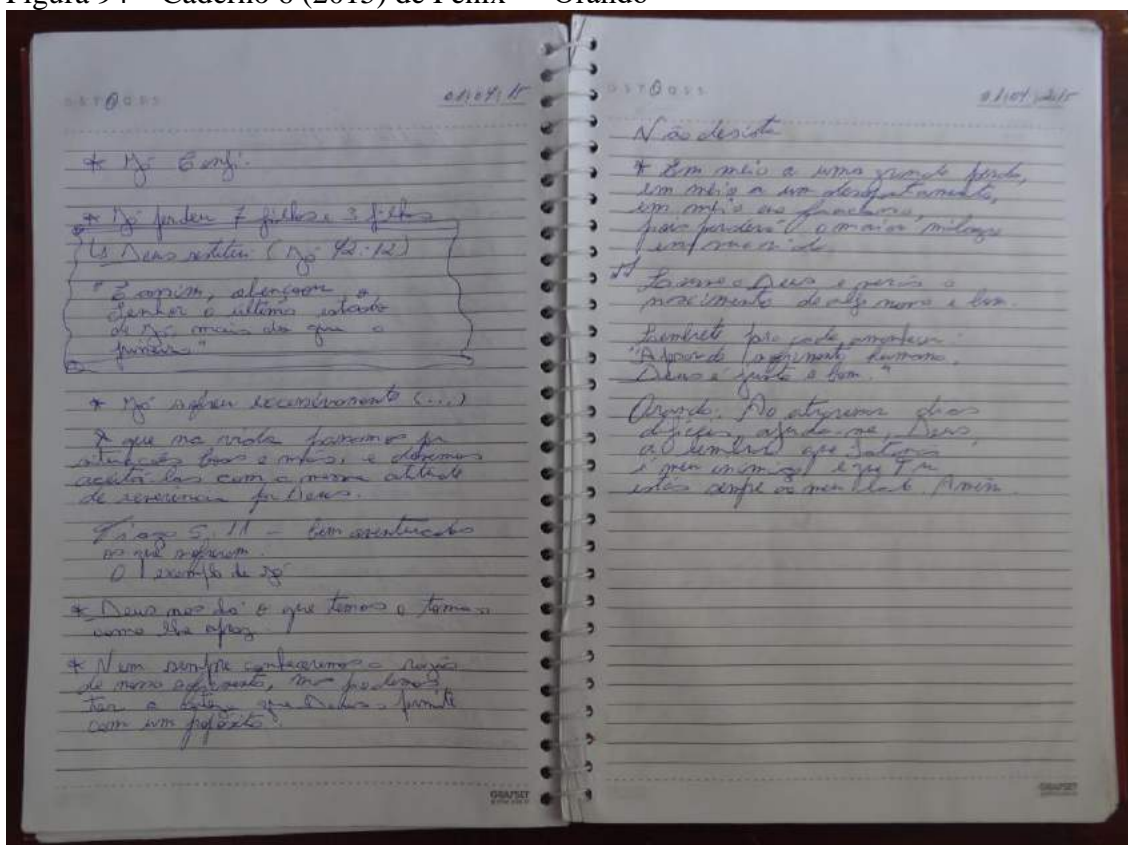 Figura 94 – Caderno 6 (2015) de Fênix – "Orando"
D S T Q Q S S
01/04/15
* Jó
* Jó perdeu 7 filhos e 3 filhas
↳ Deus restitui (Jó 42:12)
"E assim, abençoou o
Senhor o último estado
de Jó mais do que o
primeiro"
* Jó sofreu excessivamente (...)
que na vida passamos por
situações boas e más, e devemos
aceitá-las com a mesma atitude
de reverência por Deus.
Tiago 5.11 – bem aventurados
os que sofreram.
O exemplo de Jó
* Deus nos dá o que temos e toma
como lhe apraz.
* Nem sempre conheceremos a razão
de nosso sofrimento, mas podemos
ter a certeza que Deus permite
com um propósito.
GRAFSET
D S T Q Q S S
01/04/2015
Não desista
* Em meio a uma grande perda,
em meio a um desapontamento,
em meio ao fracasso,
o maior milagre
em sua vida.
Deus e verás o
nascimento de algo novo e bom.
Lembrete para cada amanhecer:
"Apesar do sofrimento humano,
Deus é justo e bom."
Orando: Ao atravessar dias
difíceis, ajuda-me, Deus,
a lembrar que Satanás
é meu inimigo e que Tu
estás sempre ao meu lado. Amém.
GRAFSET